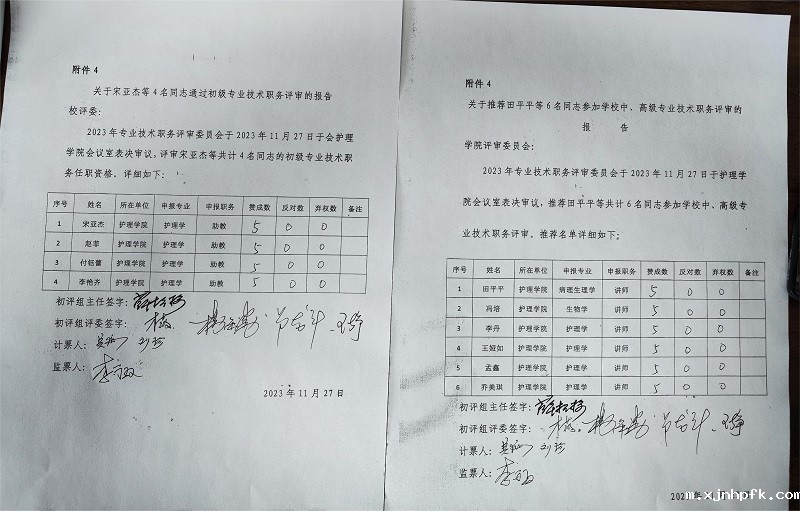 附件 4
关于宋亚杰等 4 名同志通过初级专业技术职务评审的报告
校评委：
2023 年专业技术职务评审委员会于 2023 年 11 月 27 日于会护理
学院会议室表决审议，评审宋亚杰等共计 4 名同志的初级专业技术职
务任职资格。详细如下：
序号 姓名 所在单位 申报专业 申报职务 赞成数 反对数 弃权数 备注
1 宋亚杰 护理学院 护理学 助教 5 0 0
2 赵菲 护理学院 护理学 助教 5 0 0
3 付钰蕾 护理学院 护理学 助教 5 0 0
4 李艳齐 护理学院 护理学 助教 5 0 0
初评组主任签字：
初评组评委签字：
计票人：
监票人：
2023 年 11 月 27 日
附件 4
关于推荐田平平等 6 名同志参加学校中、高级专业技术职务评审的
报 告
学院评审委员会：
2023 年专业技术职务评审委员会于 2023 年 11 月 27 日于护理学
院会议室表决审议，推荐田平平等共计 6 名同志参加学校中、高级专
业技术职务评审。推荐名单详细如下：
序号 姓名 所在单位 申报专业 申报职务 赞成数 反对数 弃权数 备注
1 田平平 护理学院 病理生理学 讲师 5 0 0
2 冯培 护理学院 生物学 讲师 5 0 0
3 李丹 护理学院 护理学 讲师 5 0 0
4 王娅如 护理学院 护理学 讲师 5 0 0
5 孟鑫 护理学院 护理学 讲师 5 0 0
6 乔美琪 护理学院 护理学 讲师 5 0 0
初评组主任签字：
初评组评委签字：
计票人：
监票人：
m.xjnhpfk.com